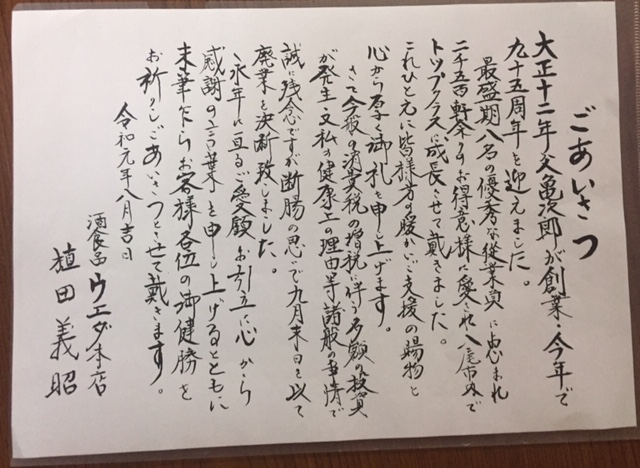 ごあいさつ
大正十二年父亀次郎が創業・今年で
九十五周年を迎えました。
最盛期八名の優秀な従業員に恵まれ
二千五百軒余りのお得意様に愛され八尾市内で
トップクラスに成長させて戴きました。
これひとえに皆様方の暖かいご支援の賜物と
心から厚く御礼を申し上げます。
さて今般の消費税の増税に伴う多額の投資
が発生・又私の健康上の理由等諸般の事情で
誠に残念ですが断腸の思いで九月末日を以て
廃業を決断致しました。
永年に亘るご愛顧お引立に心から
感謝の言葉を申し上げるとともに
末筆乍らお客様各位の御健勝を
お祈りしごあいさつとさせて戴きます。
令和元年八月吉日
酒食品ウエダ本店
植田義昭